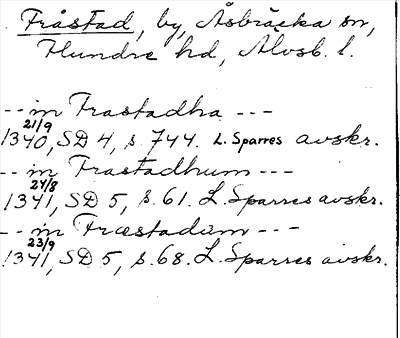 Fråstad, by, Åsbräcka sn,
Flundre hd, Älvsb. l.
-- in Frastadha ---
21/9
1340, SD 4, s. 744. L. Sparres avskr.
-- in Frastadhum ---
24/8
1341, SD 5, s. 61. L. Sparres avskr.
-- in Fræstadum ---
23/9
1341, SD 5, s. 68. L. Sparres avskr.